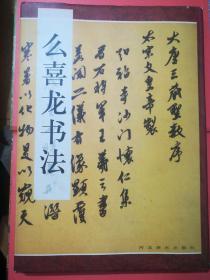 么喜龙书法
大唐三藏聖教序
太宗文皇帝製
弘福寺沙門懷仁集
右將軍王羲之書
蓋聞二儀有像顯覆
潛
寒暑以化物是以窺天
河北美术出版社